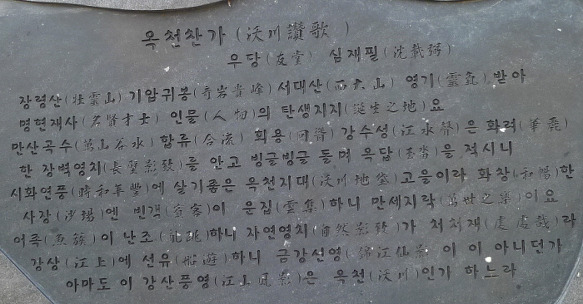 옥천찬가(沃川讚歌)
우당(友堂) 심재필(沈載弼)
장령산(壯靈山) 기암귀봉(奇岩貴峰) 서대산(西大山) 영기(靈氣) 받아
명현재사(名賢才士) 인물(人物)의 탄생지지(誕生之地)요
만산곡수(萬山谷水) 합류(合流) 회용(回溶) 강수성(江水聲)은 화려(華麗)
한 장벽영치(長壁影致)를 안고 빙글빙글 돌며 옥답(玉畓)을 적시니
시화연풍(時和年豊)에 살기좋은 옥천지대(沃川地垈)고을이라 화창(和暢)한
사장(沙場)엔 빈객(賓客)이 운집(雲集)하니 만세지락(萬世之樂)이요
어족(魚族)이 난조하니 자연영치(自然影致)가 처처재(處處哉)라
강상(江上)에 선유(船遊)하니 금강선영(錦江仙影)이 이 아니던가
아마도 이 강산풍영(江山風影)은 옥천(沃川)인가 하느라